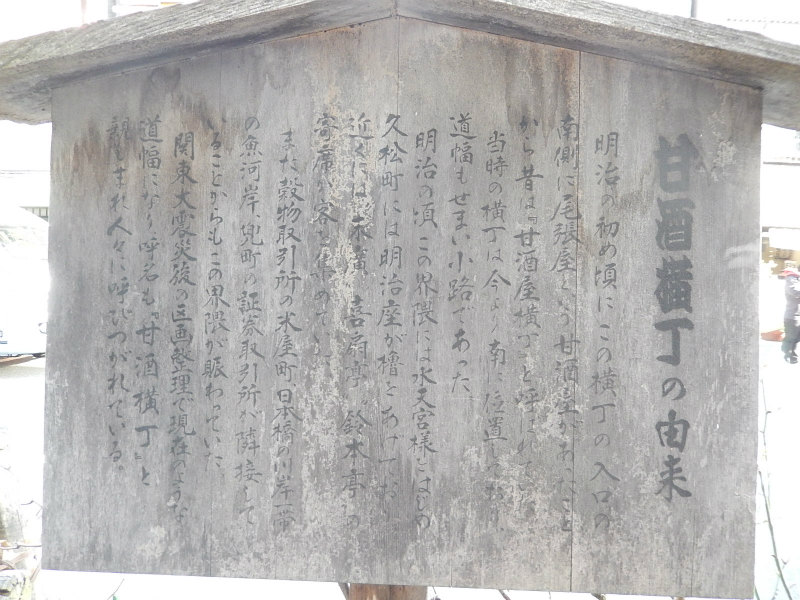 甘酒横丁の由来
明治の初め頃にこの横丁の入口の
南側に尾張屋という甘酒屋があったこと
から昔は『甘酒屋横丁』と呼ばれてい
当時の横丁は今より南に位置しており、
道幅もせまい小路であった
明治の頃この界隈には水天宮様をはじめ
久松町には明治座が櫓をあげており
近くには末廣 喜扇亭 鈴本亭の
寄席が客を集めてい
また穀物取引所の米屋町、日本橋の川岸一帯
の魚河岸、兜町の証券取引所が隣接して
いることからもこの界隈が賑わっていた
関東大震災後の区画整理で現在のような
道幅になり呼名も『甘酒横丁』と
親しまれ人々に呼びつがれている。